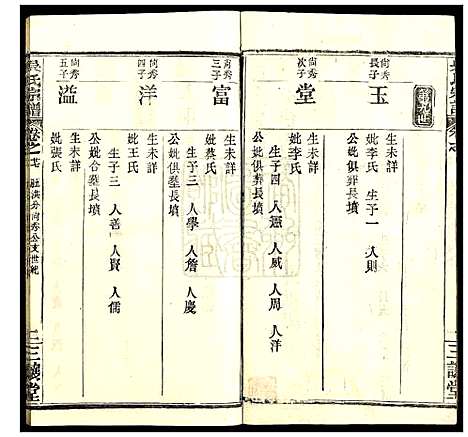 第九世
尚秀長子
玉
生未詳
妣李氏 生子一 人則
公妣俱葬長墳
尚秀次子
堂
生未詳
妣李氏
生子四 人憲 人威 人周 人洋
公妣俱葬長墳
尚秀三子
富
生未詳
妣蔡氏
生子三 人學 人詹 人慶
公妣俱塟長墳
尚秀四子
洋
生未詳
妣王氏
生子三 人善 人賢 人儒
公妣合塟長墳
尚秀五子
溢
生未詳
妣張氏
吳氏宗譜
卷之
尚秀公支世紀
三讓堂